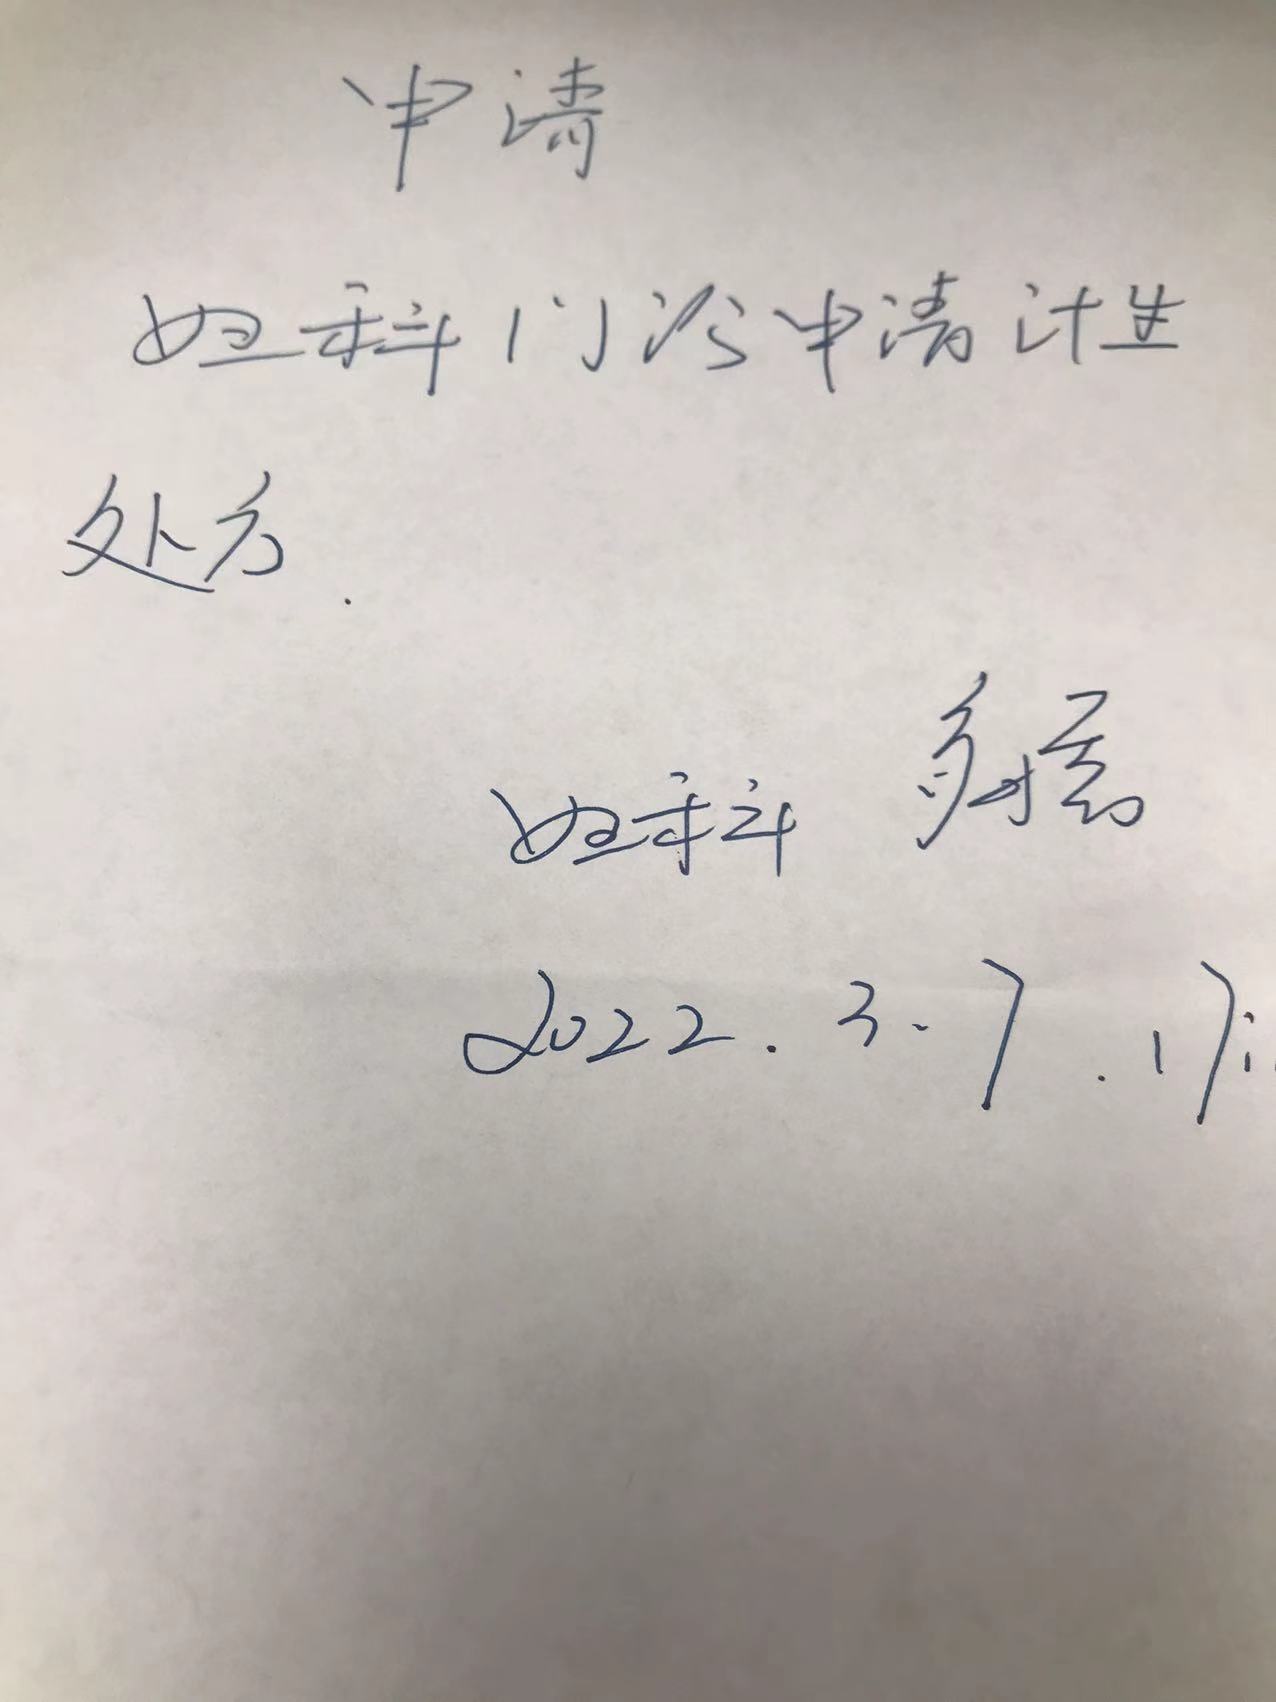 申请
妇科门诊申请计生
处方.
妇科
2022.3.7.17: